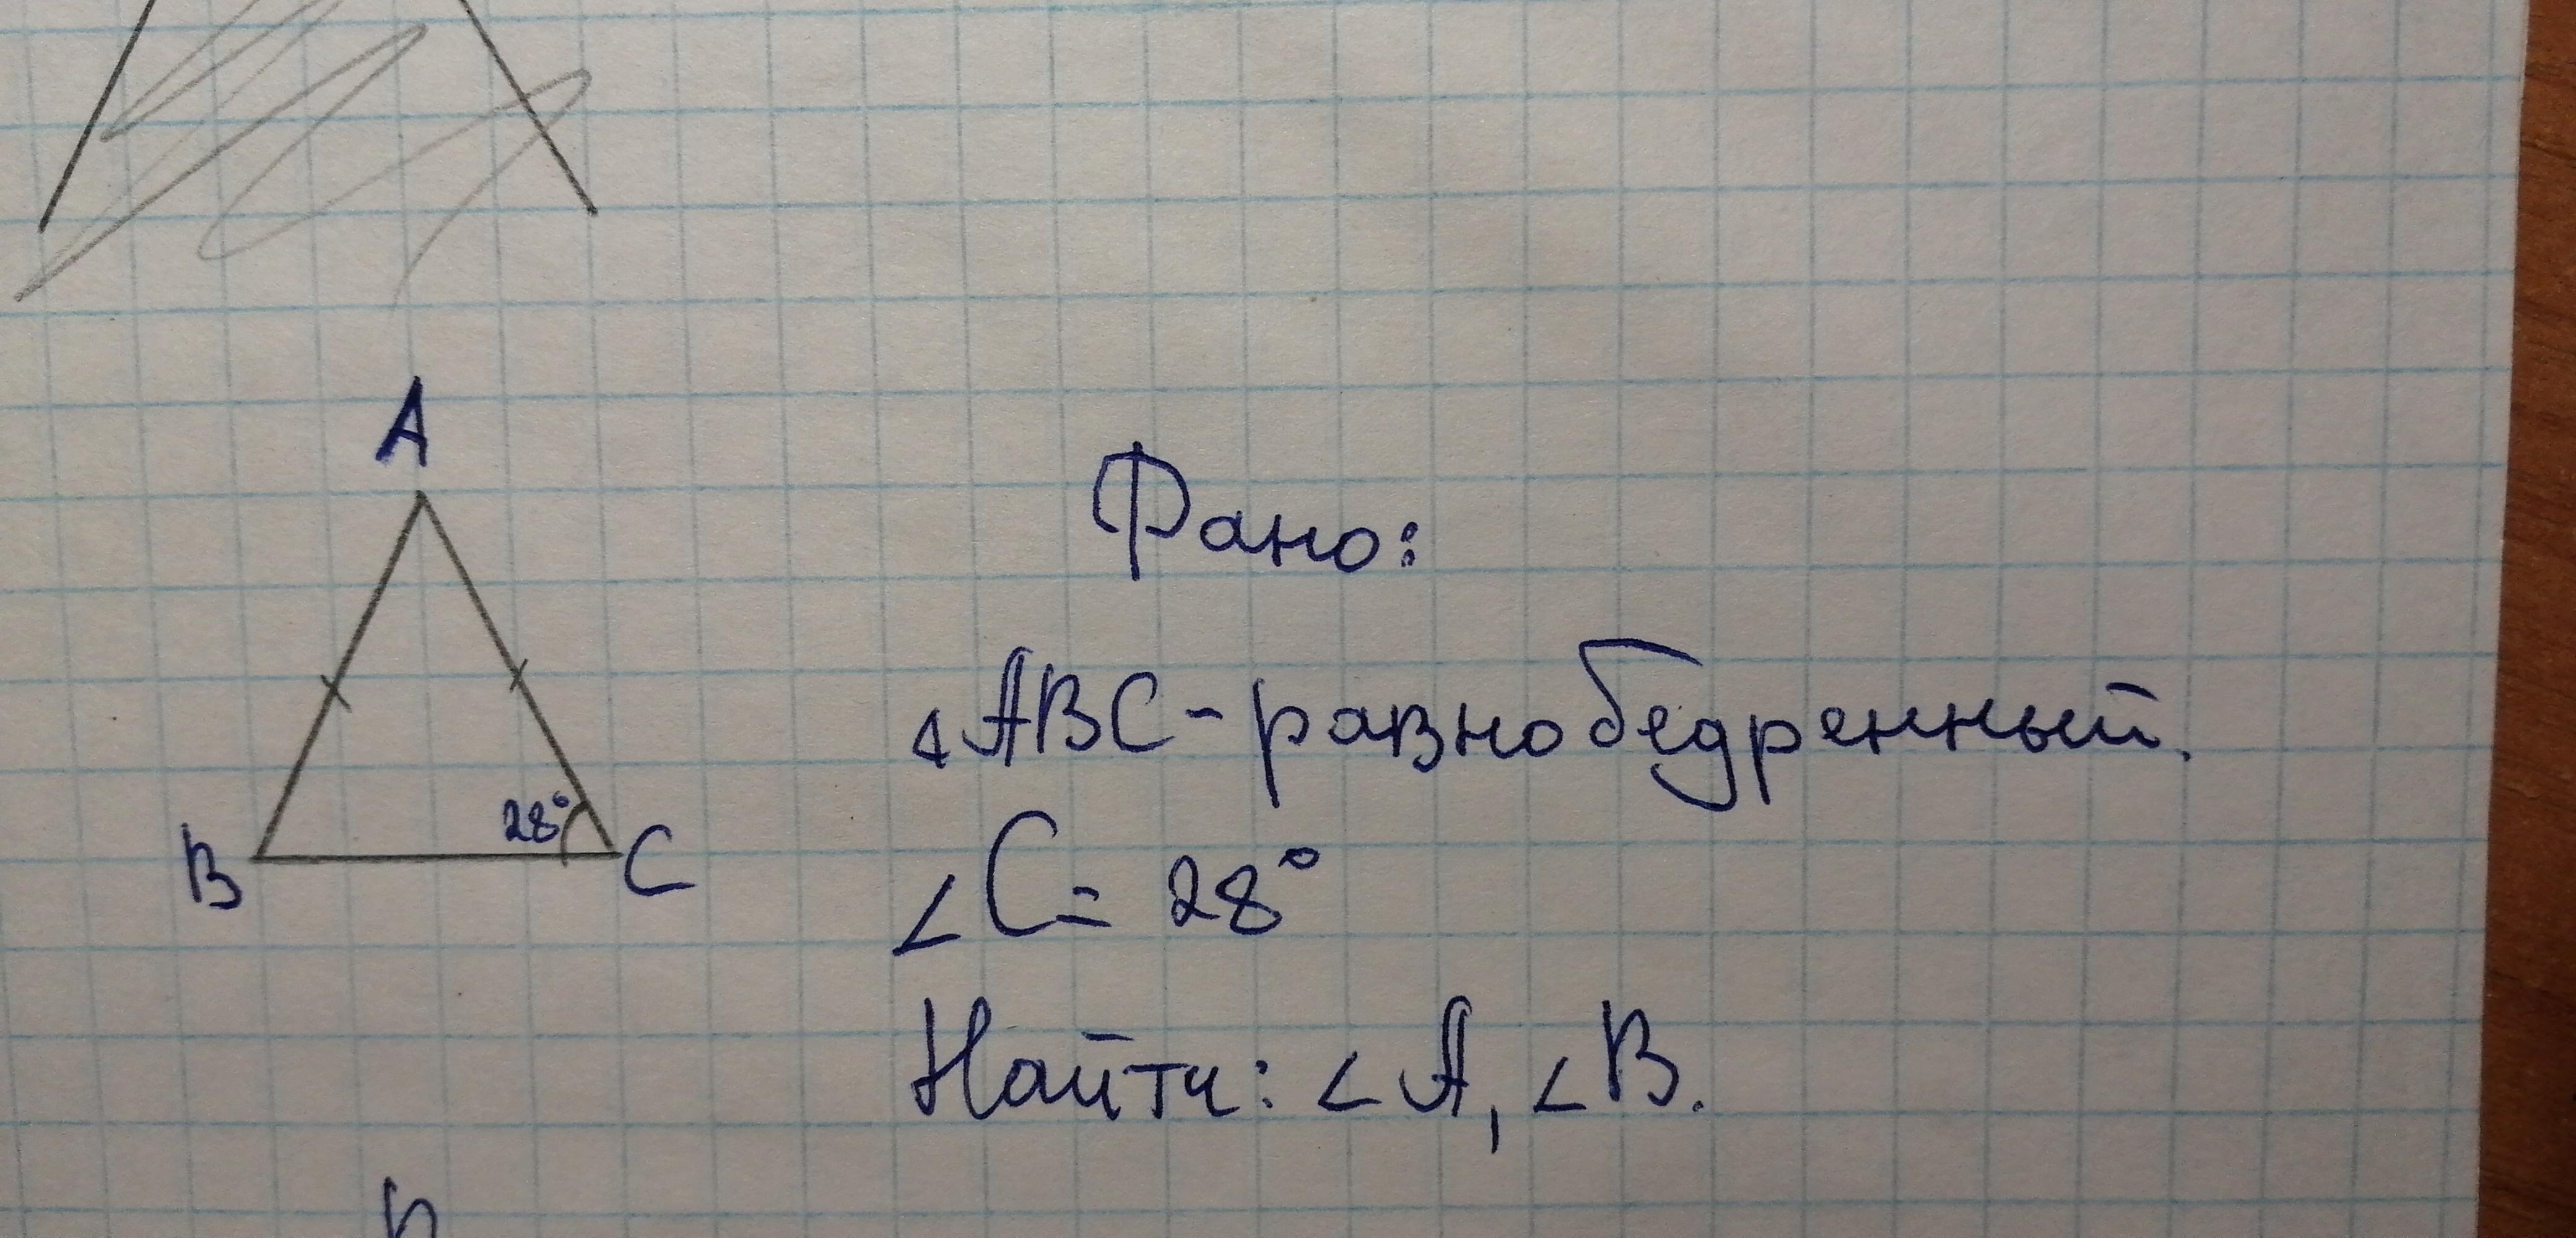 A
B
28°
C
Фано:
△ABC-равнобедренный.
∠C= 28°
Найти: ∠A, ∠B.